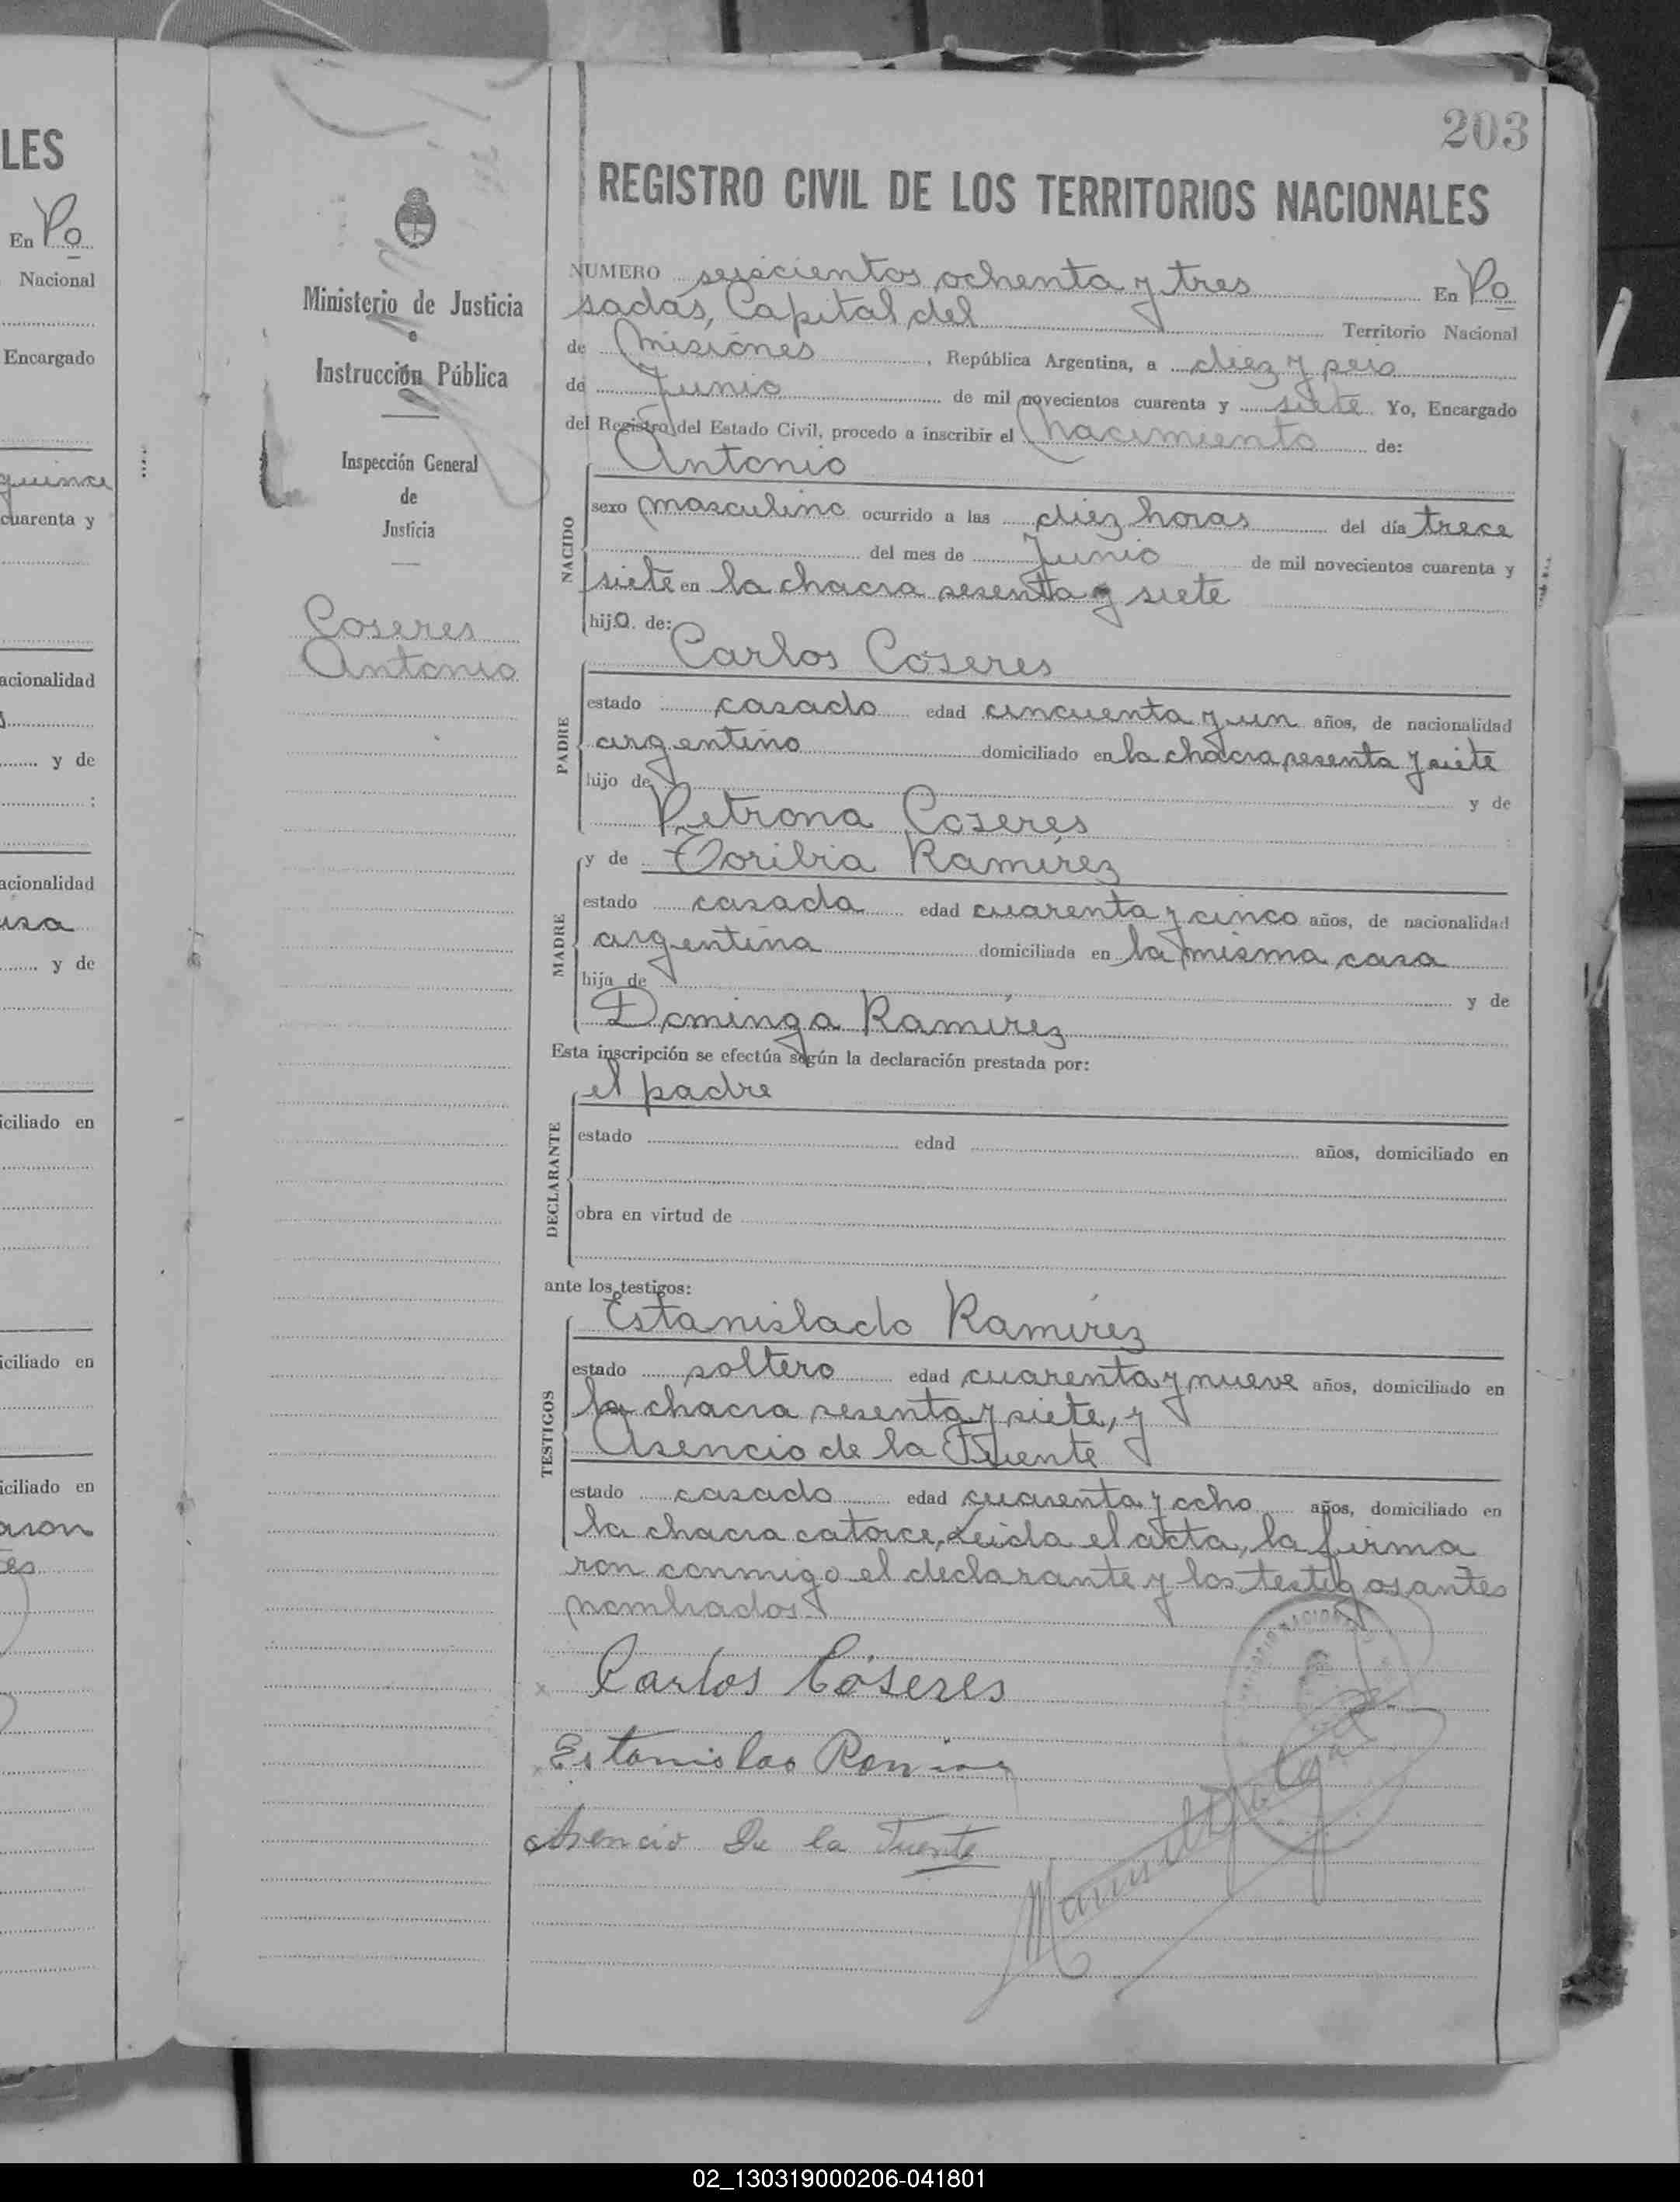 LES
En Po
Nacional
Encargado
quince
cuarenta y
acionalidad
y de
:
acionalidad
y de
iciliado en
iciliado en
iciliado en
203
Ministerio de Justicia
e
Instrucción Pública
Inspección General
de
Justicia
Coseres
Antonio
REGISTRO CIVIL DE LOS TERRITORIOS NACIONALES
NUMERO seiscientos ochenta y tres En Po
sadas, Capital del Territorio Nacional
de Misiones, República Argentina, a diez y seis
de Junio de mil novecientos cuarenta y siete Yo, Encargado
del Registro del Estado Civil, procedo a inscribir el nacimiento de:
Antonio
NACIDO
sexo masculino ocurrido a las diez horas del día trece
del mes de Junio de mil novecientos cuarenta y
siete en la chacra sesenta y siete
hijo de:
Carlos Coseres
PADRE
estado casado edad cincuenta y un años, de nacionalidad
argentino domiciliado en la chacra sesenta y siete
hijo de y de
Petrona Coseres
y de Toribia Ramírez
MADRE
estado casada edad cuarenta y cinco años, de nacionalidad
argentina domiciliada en la misma casa
hija de y de
Dominga Ramírez
Esta inscripción se efectúa según la declaración prestada por:
el padre
DECLARANTE
estado edad años, domiciliado en
obra en virtud de
ante los testigos:
Estanislado Ramírez
TESTIGOS
estado soltero edad cuarenta y nueve años, domiciliado en
la chacra sesenta y siete, y
Asencio de la Fuente
estado casado edad cuarenta y ocho años, domiciliado en
la chacra catorce, Leida el acta, la firma
ron conmigo el declarante y los testigos antes
nombrados.
Carlos Cóseres
Estanislao
Asencio De la Fuente
Manuel
02_130319000206-041801